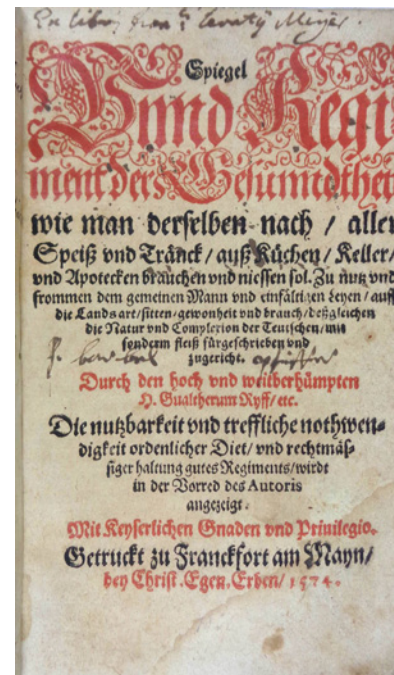 Ex libris
Meÿer.
Spiegel
Vnnd Regi
ment der Gesundthen
wie man derselben nach / aller
Speiß vnd Tränck / auß Küchen / Keller /
vnd Apotecken brauchen vnd niessen sol. Zu nutz vnd
frommen dem gemeinen Mann vnd einfältigen Leyen / auff
die Lands art / sitten / gewonheit vnd brauch / deßgleichen
die Natur vnd Complexion der Teutschen / mit
sonderm fleiß fürgeschrieben vnd
zugericht.
Durch den hoch vnd weitberhümpten
D. Gualtherum Ryff / etc.
Die nutzbarkeit vnd treffliche nothwen-
digkeit ordenlicher Diet / vnd rechtmäs-
siger haltung gutes Regiments / wirdt
in der Vorred des Autoris
angezeigt.
Mit Keyserlichen Gnaden vnd Priuilegio.
Getruckt zu Franckfort am Mayn /
bey Christ. Egen. Erben / 1574.